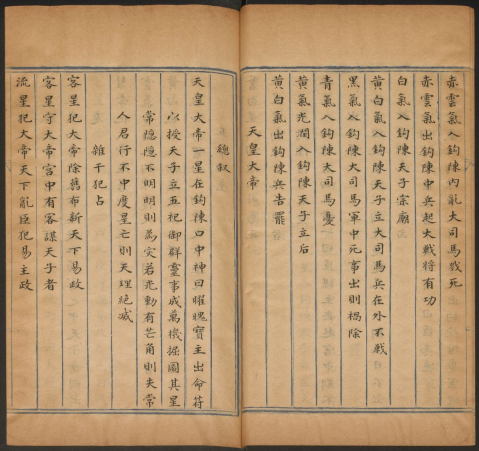 赤雲氣入鈎陳內亂大司馬戮死
赤雲氣出鈎陳中兵起大戰將有功
白氣入鈎陳天子宗廟
黄白氣入鈎陳天子立大司馬兵在外不戰
黑氣入鈎陳大司馬軍中死事出則禍除
青氣入鈎陳大司馬憂
黄氣光潤入鈎陳天子立后
黄白氣出鈎陳兵吉罷
天皇大帝
總叙
天皇大帝一星在鈎陳口中神曰曜魄寶主出命符
以授天子立五祀御群靈事成萬機據圖其星
常隐隐不明明則為灾若光動有芒角則失常
人君行不中度星亡則天理絶滅
雜干犯占
客星犯大帝除舊布新天下易政
客星守大帝宫中有客謀天子者
流星犯大帝天下亂臣犯易主政